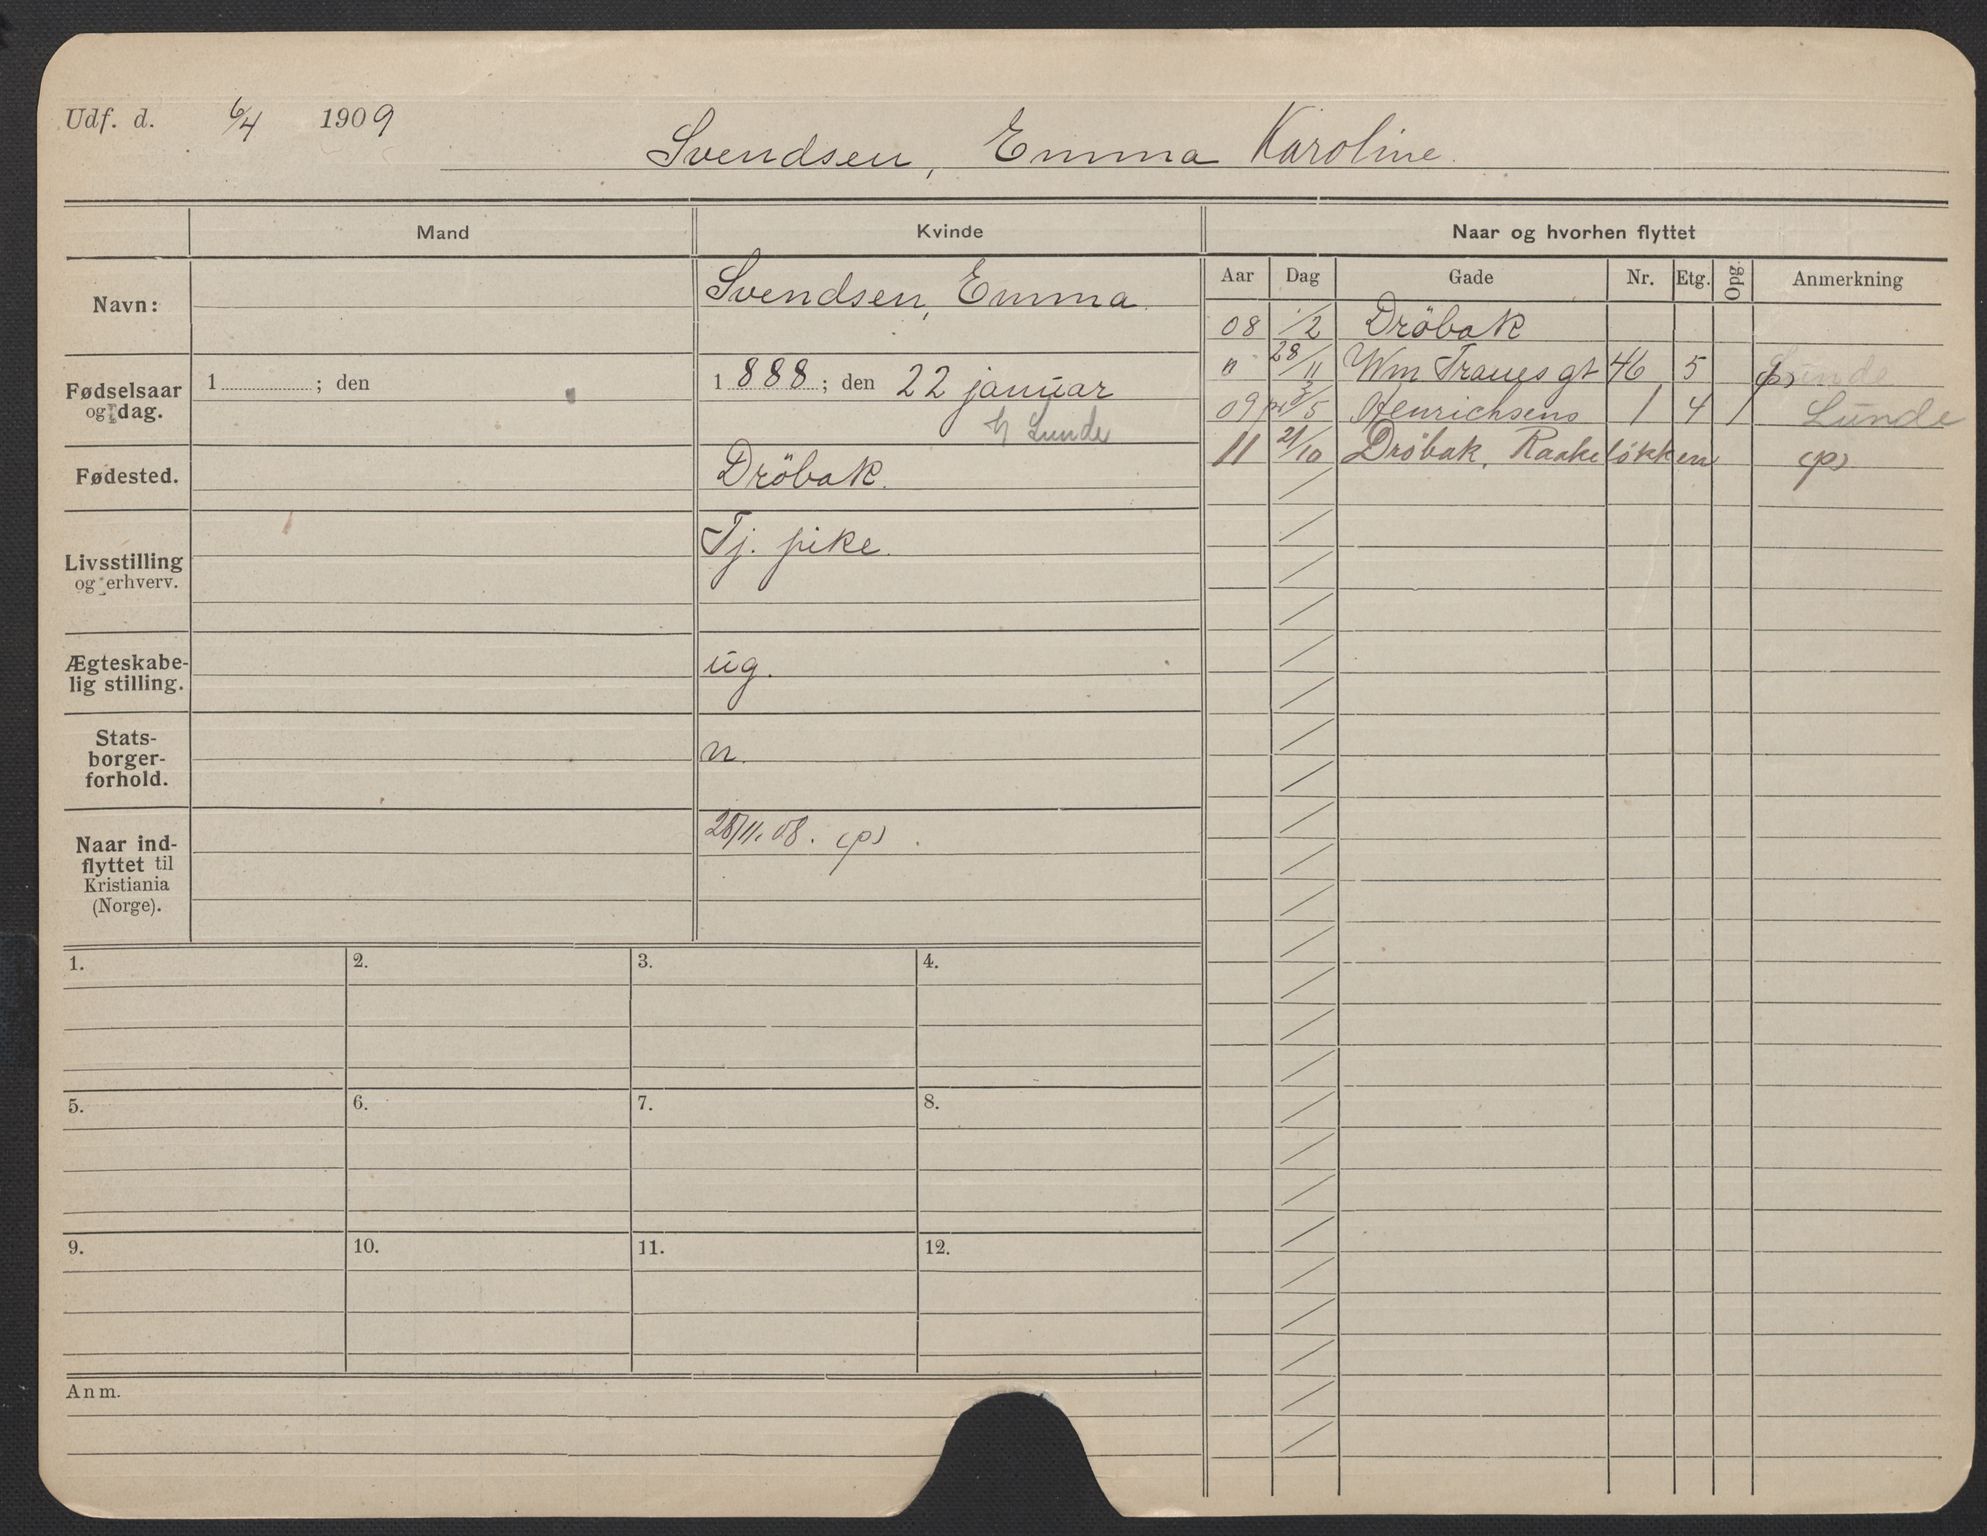 Udf. d. 6/4 1909
Svendsen, Emma Karoline.
Mand Kvinde Naar og hvorhen flyttet
Aar Dag Gade Nr. Etg. Opg. Anmerkning
Navn: Svendsen, Emma.
08 1/2 Dröbak
" 28/11 Wm Tranes gt 46 5 (p) Lunde
Fødselsaar og dag. 1 ; den 1888 ; den 22 januar
h/ Lunde
09 3/5 Henrichsens 1 4 1 Lunde
11 21/10 Dröbak, Raakeløkken (p)
Fødested. Dröbak.
Livsstilling og erhverv. Tj. pike.
Ægteskabe-
lig stilling. ug.
Stats-
borger-
forhold. n.
Naar ind-
flyttet til
Kristiania
(Norge). 28/11. 08. (p) .
1. 2. 3. 4.
5. 6. 7. 8.
9. 10. 11. 12.
Anm.